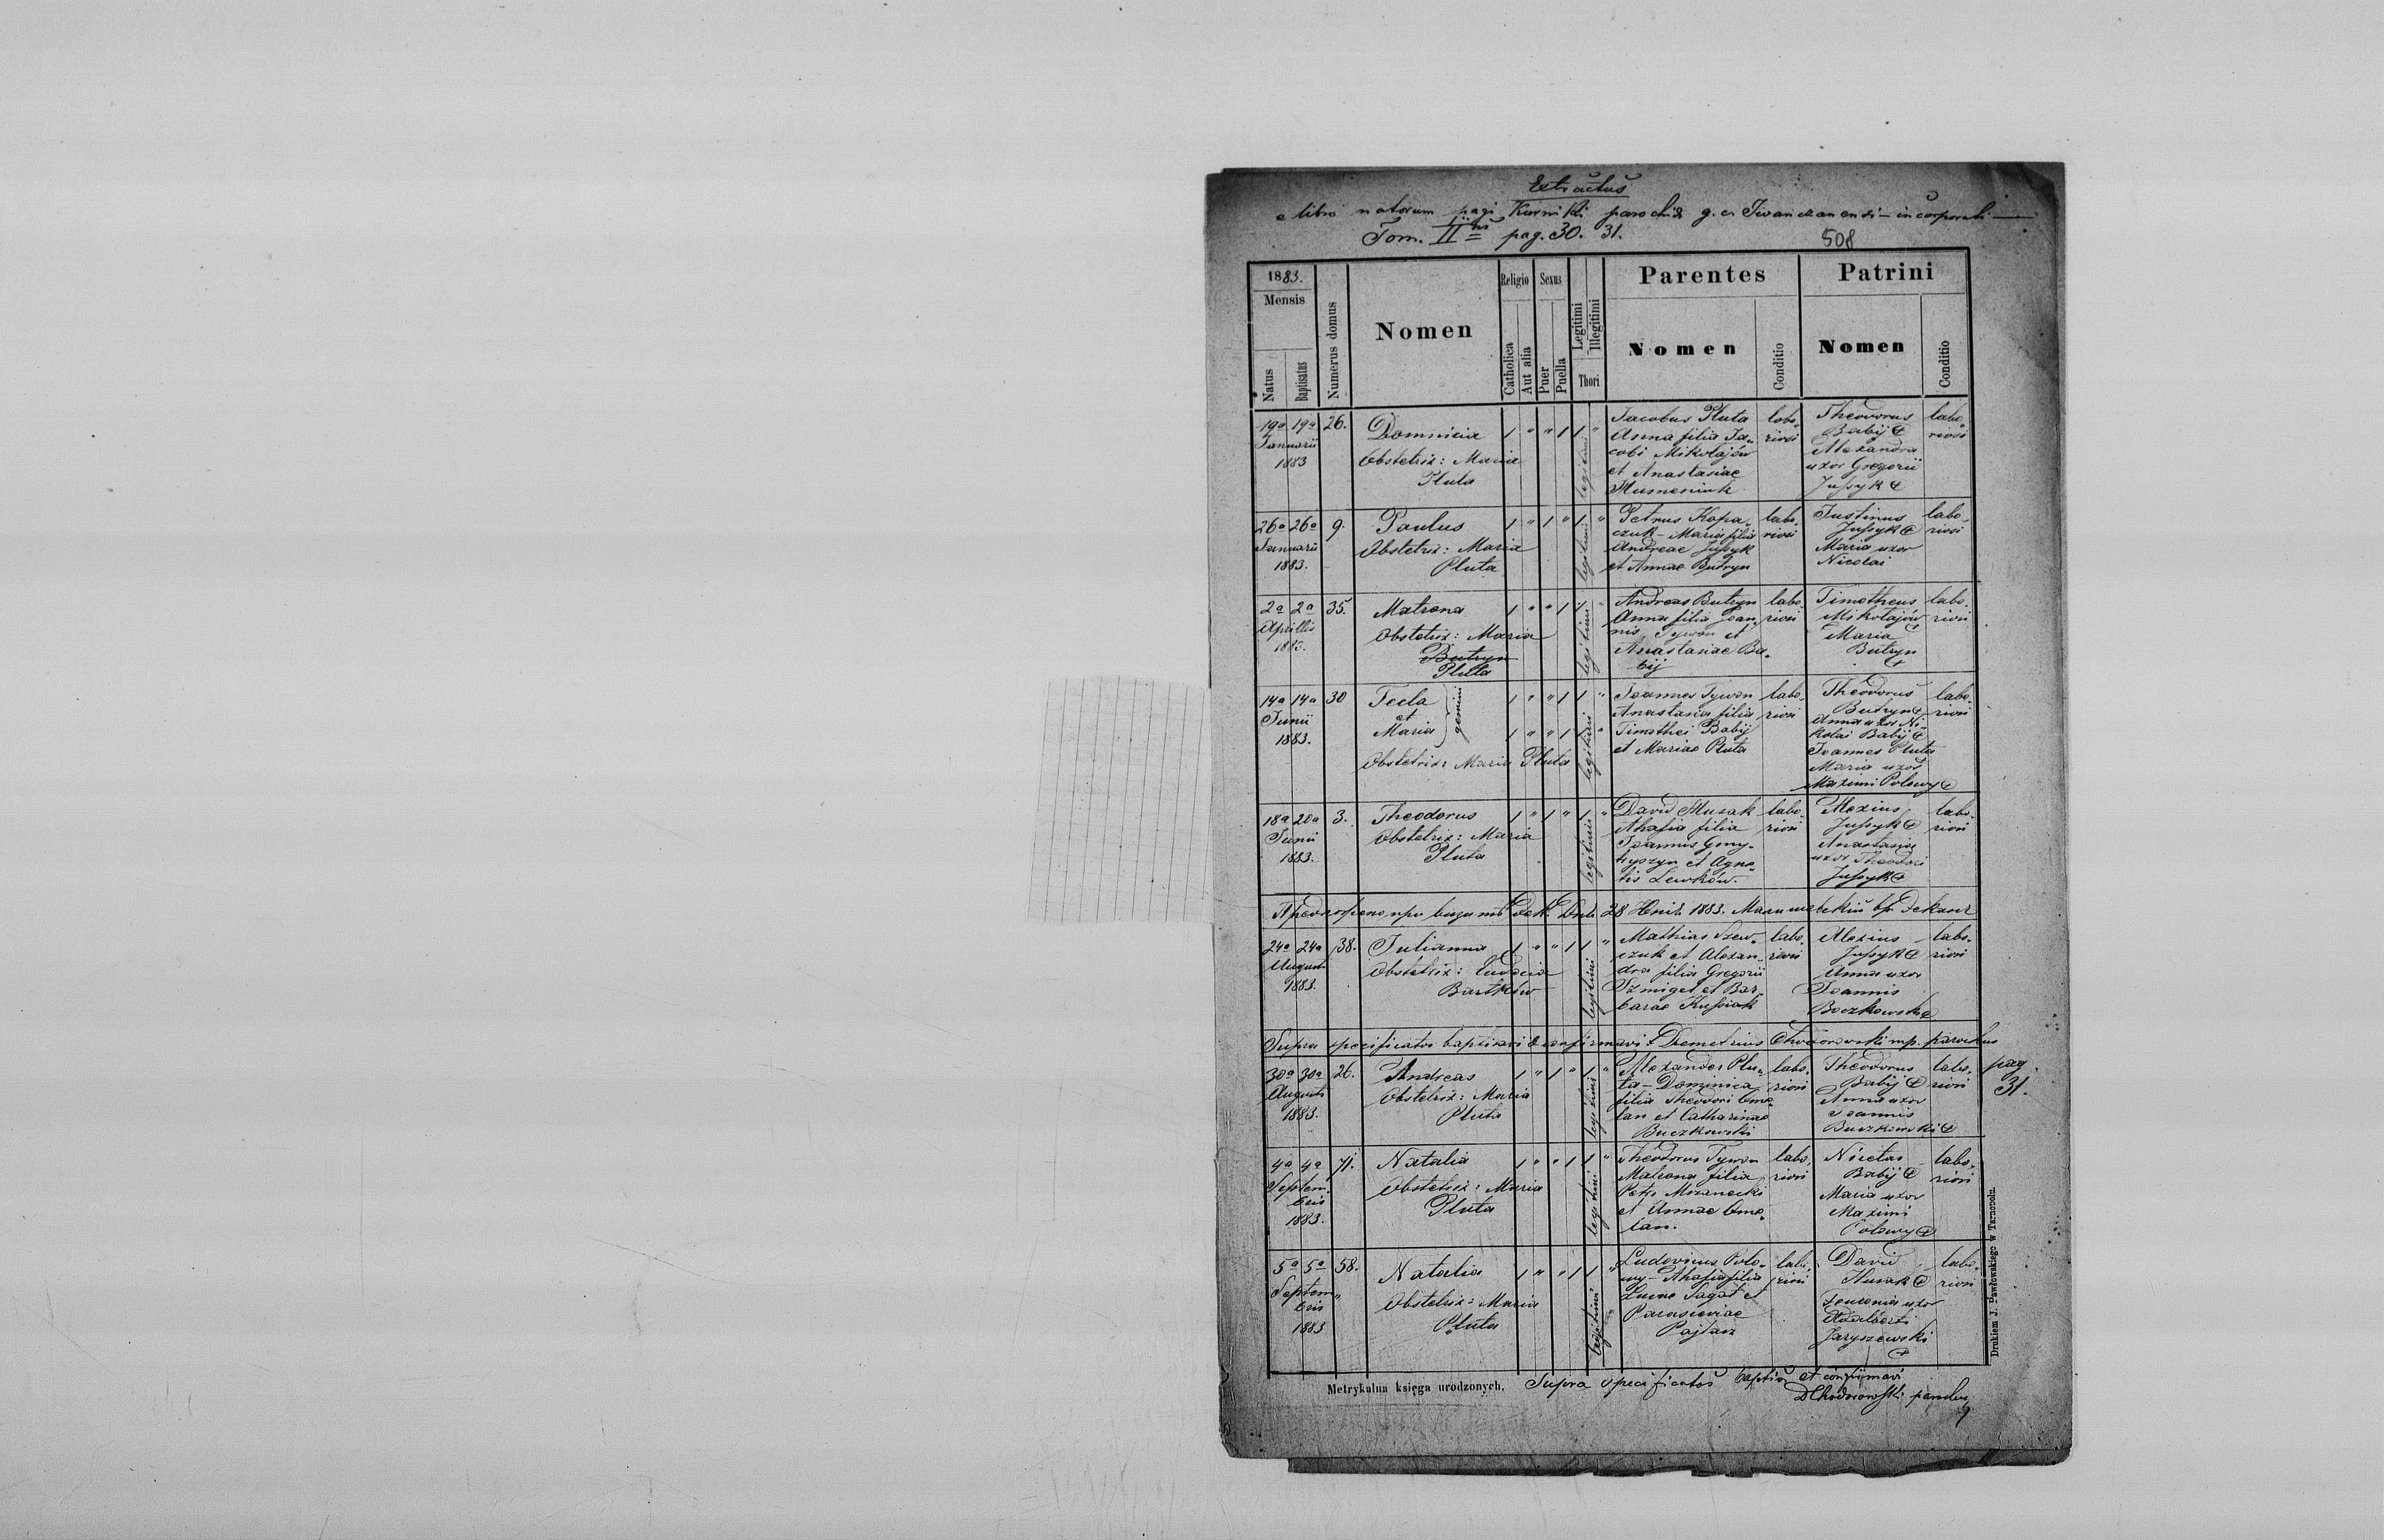 Extractus
e libro natorum pagi Kurniki parochiæ g. c. Iwanczanensi incorporati
Tom. II pag. 30. 31.
508
1883.
Mensis
Natus
Baptisatus
Numerus domus
Nomen
Religio
Catholica
Aut alia
Sexus
Puer
Puella
Legitimi
Illegitimi
Thori
Parentes
Nomen
Conditio
Patrini
Nomen
Conditio
19a 19a 26.
Januarii
1883
Domnicia
Obstetrix: Maria
Pluta
1 " " 1 1 "
legitimi
Jacobus Pluta
Anna filia Ja-
cobi Mikołajów
et Anastasiae
Humeniuk
labo-
riosi
Theodorus
Babij
Alexandra
uxor Gregorii
Jussyk
labo-
riosi
26a 26a 9.
Januarii
1883.
Paulus
Obstetrix: Maria
Pluta
1 " 1 " 1 "
legitimi
Petrus Kopa-
czuk - Maria filia
Andreae Jussyk
et Annae Butryn
labo-
riosi
Justinus
Jussyk
Maria uxor
Nicolai
labo-
riosi
2a 2a 35.
Aprilis
1883.
Matrona
Obstetrix: Maria
Butryn
Pluta
1 " " 1 1 "
legitimi
Andreas Butryn
Anna filia Joan-
nis Tywon et
Anastasiae Ba-
bij
labo-
riosi
Timotheus
Mikołajów
Maria
Butryn
labo-
riosi
14a 14a 30
Junii
1883.
Tecla
et
Maria
gemini
Obstetrix: Maria Pluta
1 " " 1 1 "
1 " " 1 1 "
legitimi
Joannes Tywon
Anastasia filia
Timothei Babij
et Mariae Pluta
labo-
riosi
Theodorus
Butryn
Anna uxor Ni-
kolai Babij
Joannes Pluta
Maria uxor
Maximi Polowy
labo-
riosi
18a 20a 3.
Junii
1883.
Theodorus
Obstetrix: Maria
Pluta
1 " 1 " 1 "
legitimi
David Husak
Ahafia filia
Joannis
et Agne-
tis Lewków.
labo-
riosi
Alexius
Jussyk
Anastasia
uxor Theodori
Jussyk
labo-
riosi
28 1883.
24a 24a 38.
Augusti
1883.
Julianna
Obstetrix: Eudocia
Bartków
1 " " 1 1 "
legitimi
Mathias Szew-
czuk et Alexan-
dra filia Gregorii
Szmigel et Bar-
barae Kussiak
labo-
riosi
Alexius
Jussyk
Anna uxor
Joannis
Boczkowski
labo-
riosi
Supra specificatos baptisavi & confirmavi Demetrius Chodorowski mp. parochus
30a 30a 26.
Augusti
1883.
Andreas
Obstetrix: Maria
Pluta
1 " 1 " 1 "
legitimi
Alexander Plu-
ta - Dominica
filia Theodori Ome-
lan et Catharinae
Buczkowski
labo-
riosi
Theodorus
Babij
Anna uxor
Joannis
Buczkowski
labo-
riosi
pag
31.
4a 4a 71.
Septem-
bris
1883.
Natalia
Obstetrix: Maria
Pluta
1 " " 1 1 "
legitimi
Theodorus Tywon
Matrona filia
Petri Mozanecki
et Annae Ome-
lan.
labo-
riosi
Nicetas
Babij
Maria uxor
Maximi
Polowy
labo-
riosi
5a 5a 58.
Septem-
bris
1883
Natalia
Obstetrix: Maria
Pluta
1 " " 1 1 "
legitimi
Ludovicus Polo-
wy - Ahafia filia
Lucae Sagat et
Parasceviae
Pajtasz
labo-
riosi
David
Husak
uxor
Adalberti
Jaryszewski
labo-
riosi
Metrykalna księga urodzonych.
Supra specificatos baptisavi et confirmavi
DChodorowski parochus
Drukiem J. Pawłowskiego w Tarnopolu.